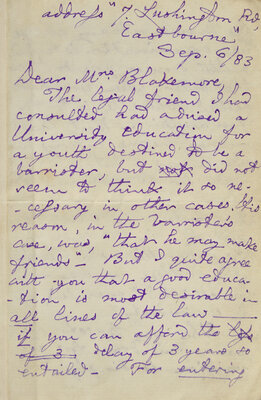 address "7, Lushington Rd,
Eastbourne"
Sep. 6/83
Dear Mrs. Blakemore,
The legal friend I had
consulted had advised a
University education for
a youth destined to be a
barrister, but not did not
seem to think it so ne-
-cessary in other cases. His
reason, in the barrister's
case, was, "that he may make
friends"— But I quite agree
with you that a good educa-
-tion is most desirable in
all lines of the law —
if you can afford the
of 3 delay of 3 years so
entailed — For entering